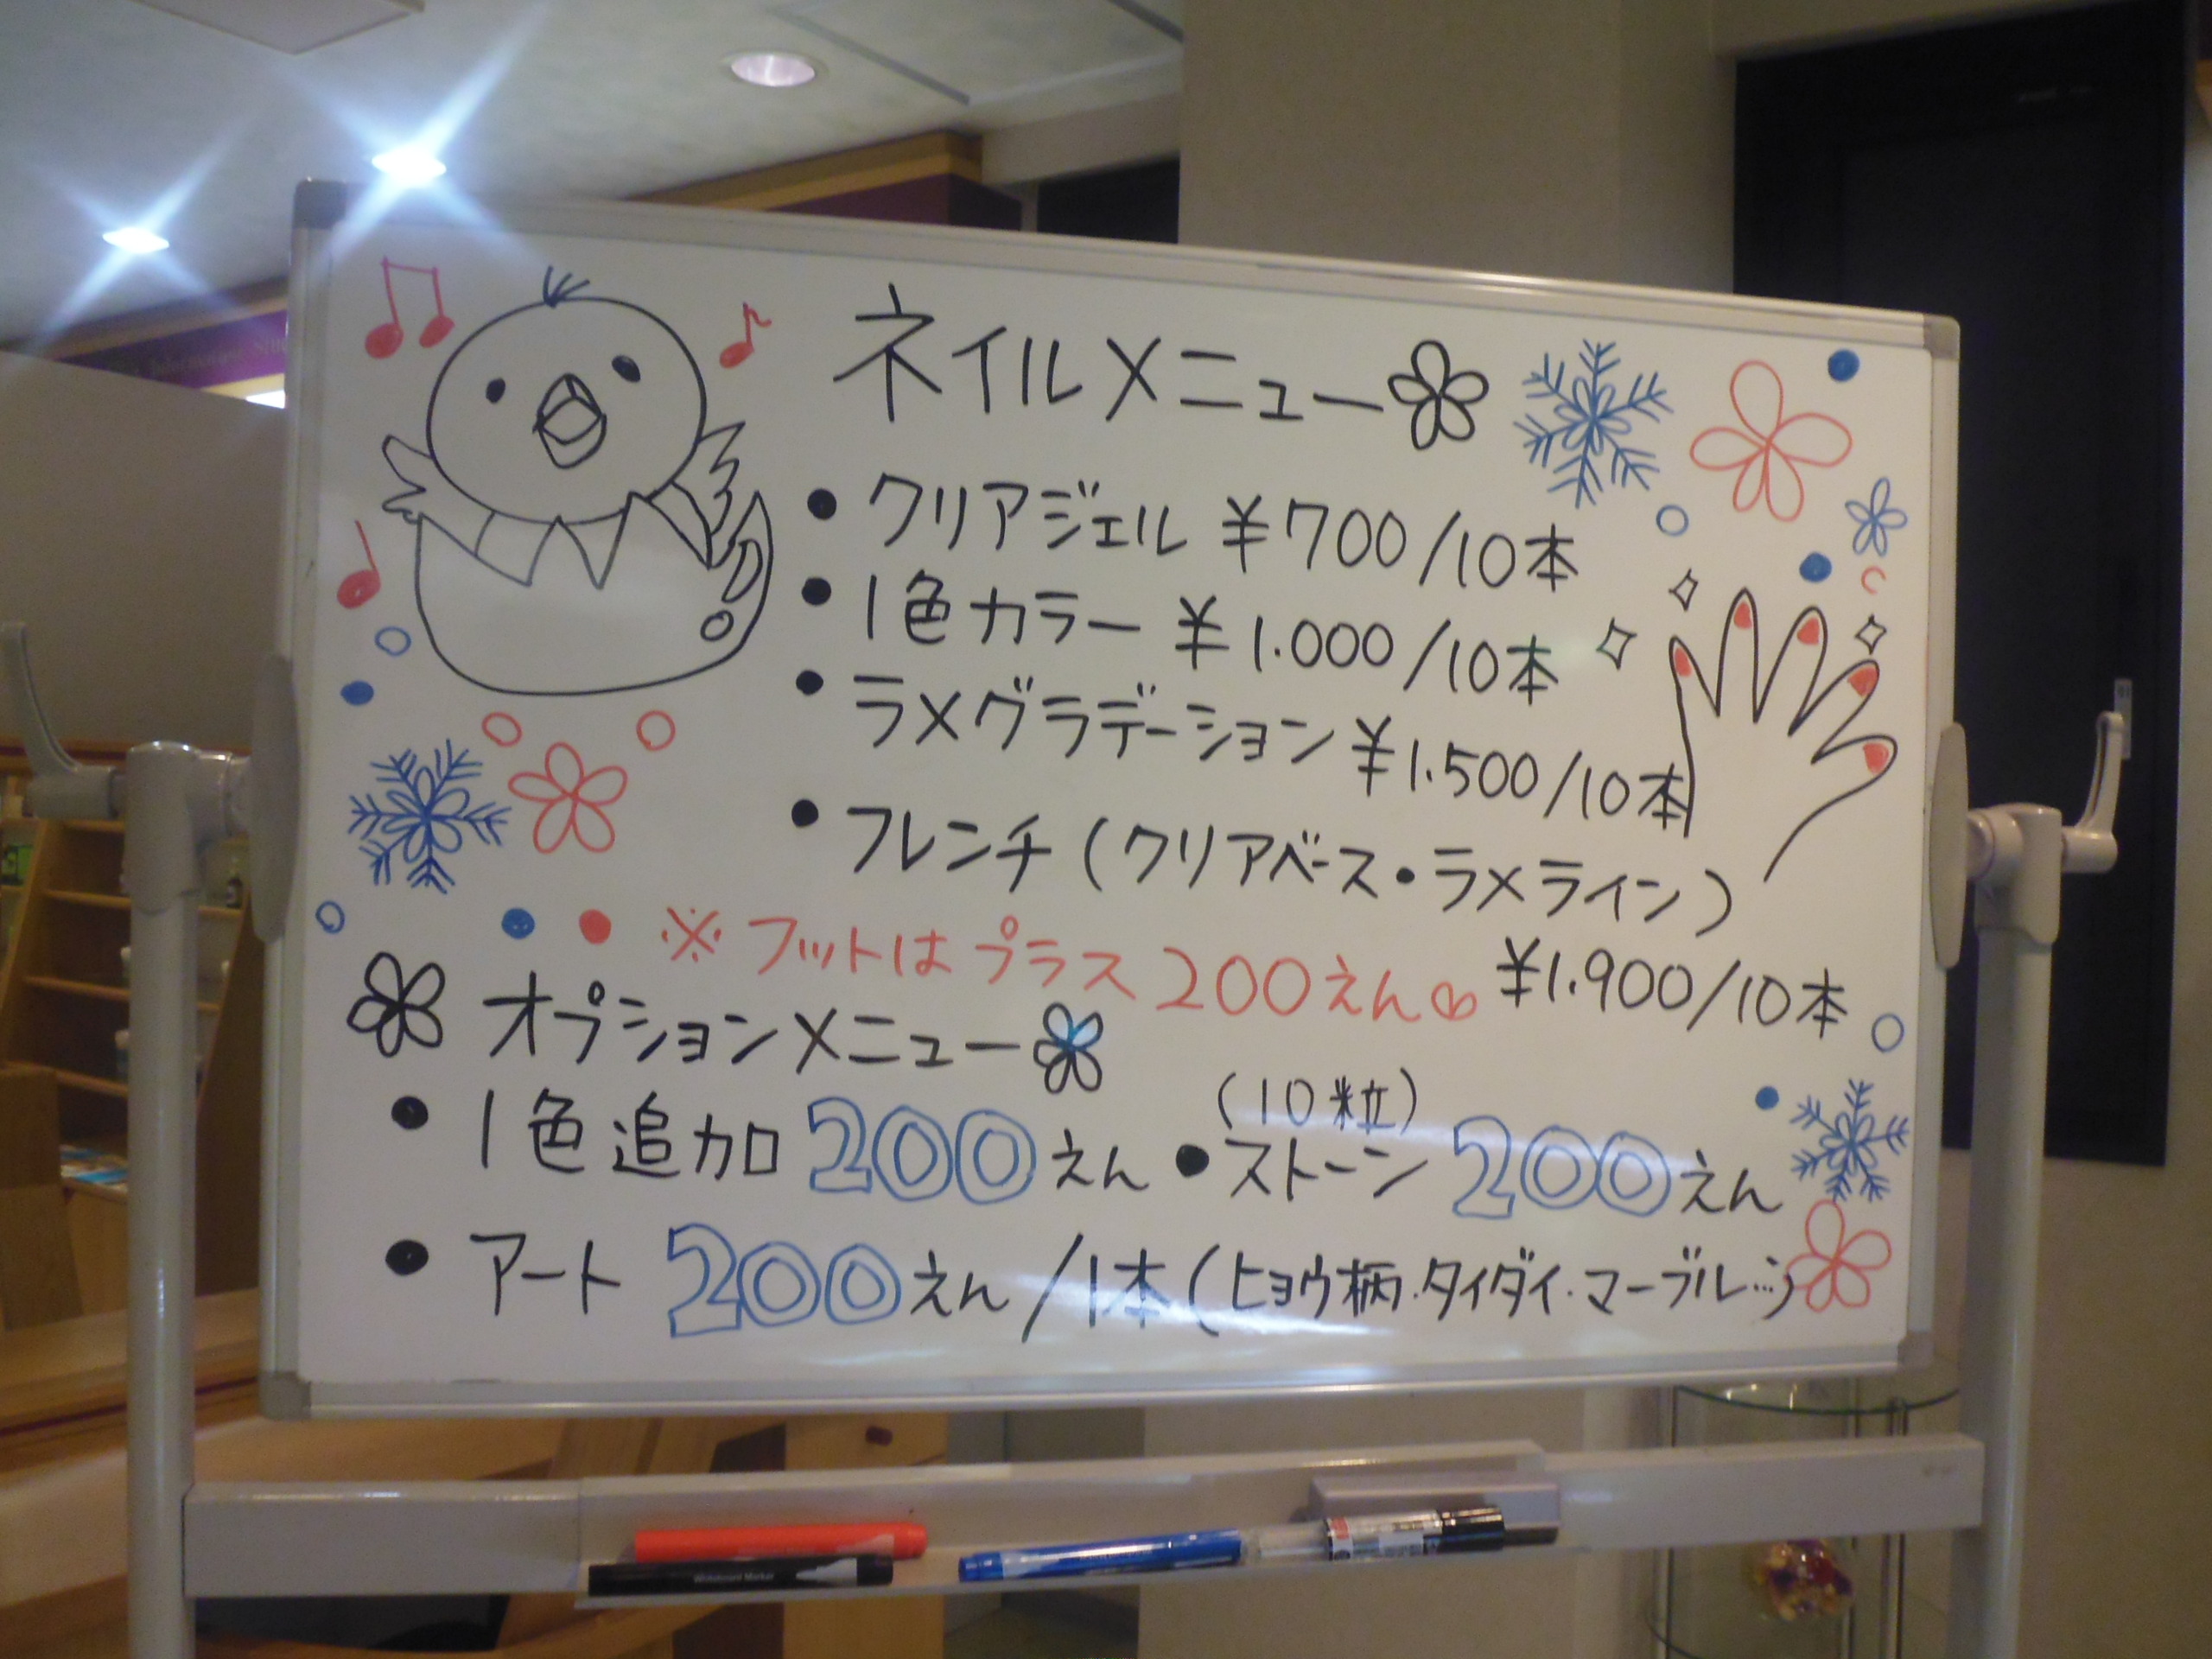 ネイルメニュー
・クリアジェル ¥700/10本
・1色カラー ¥1.000/10本
・ラメグラデーション ¥1.500/10本
・フレンチ(クリアベース・ラメライン)
¥1.900/10本
※フットはプラス200えん
オプションメニュー
・1色追加 200えん ・ストーン(10粒) 200えん
・アート 200えん/1本(ヒョウ柄・タイダイ・マーブル…)
Whiteboard Marker